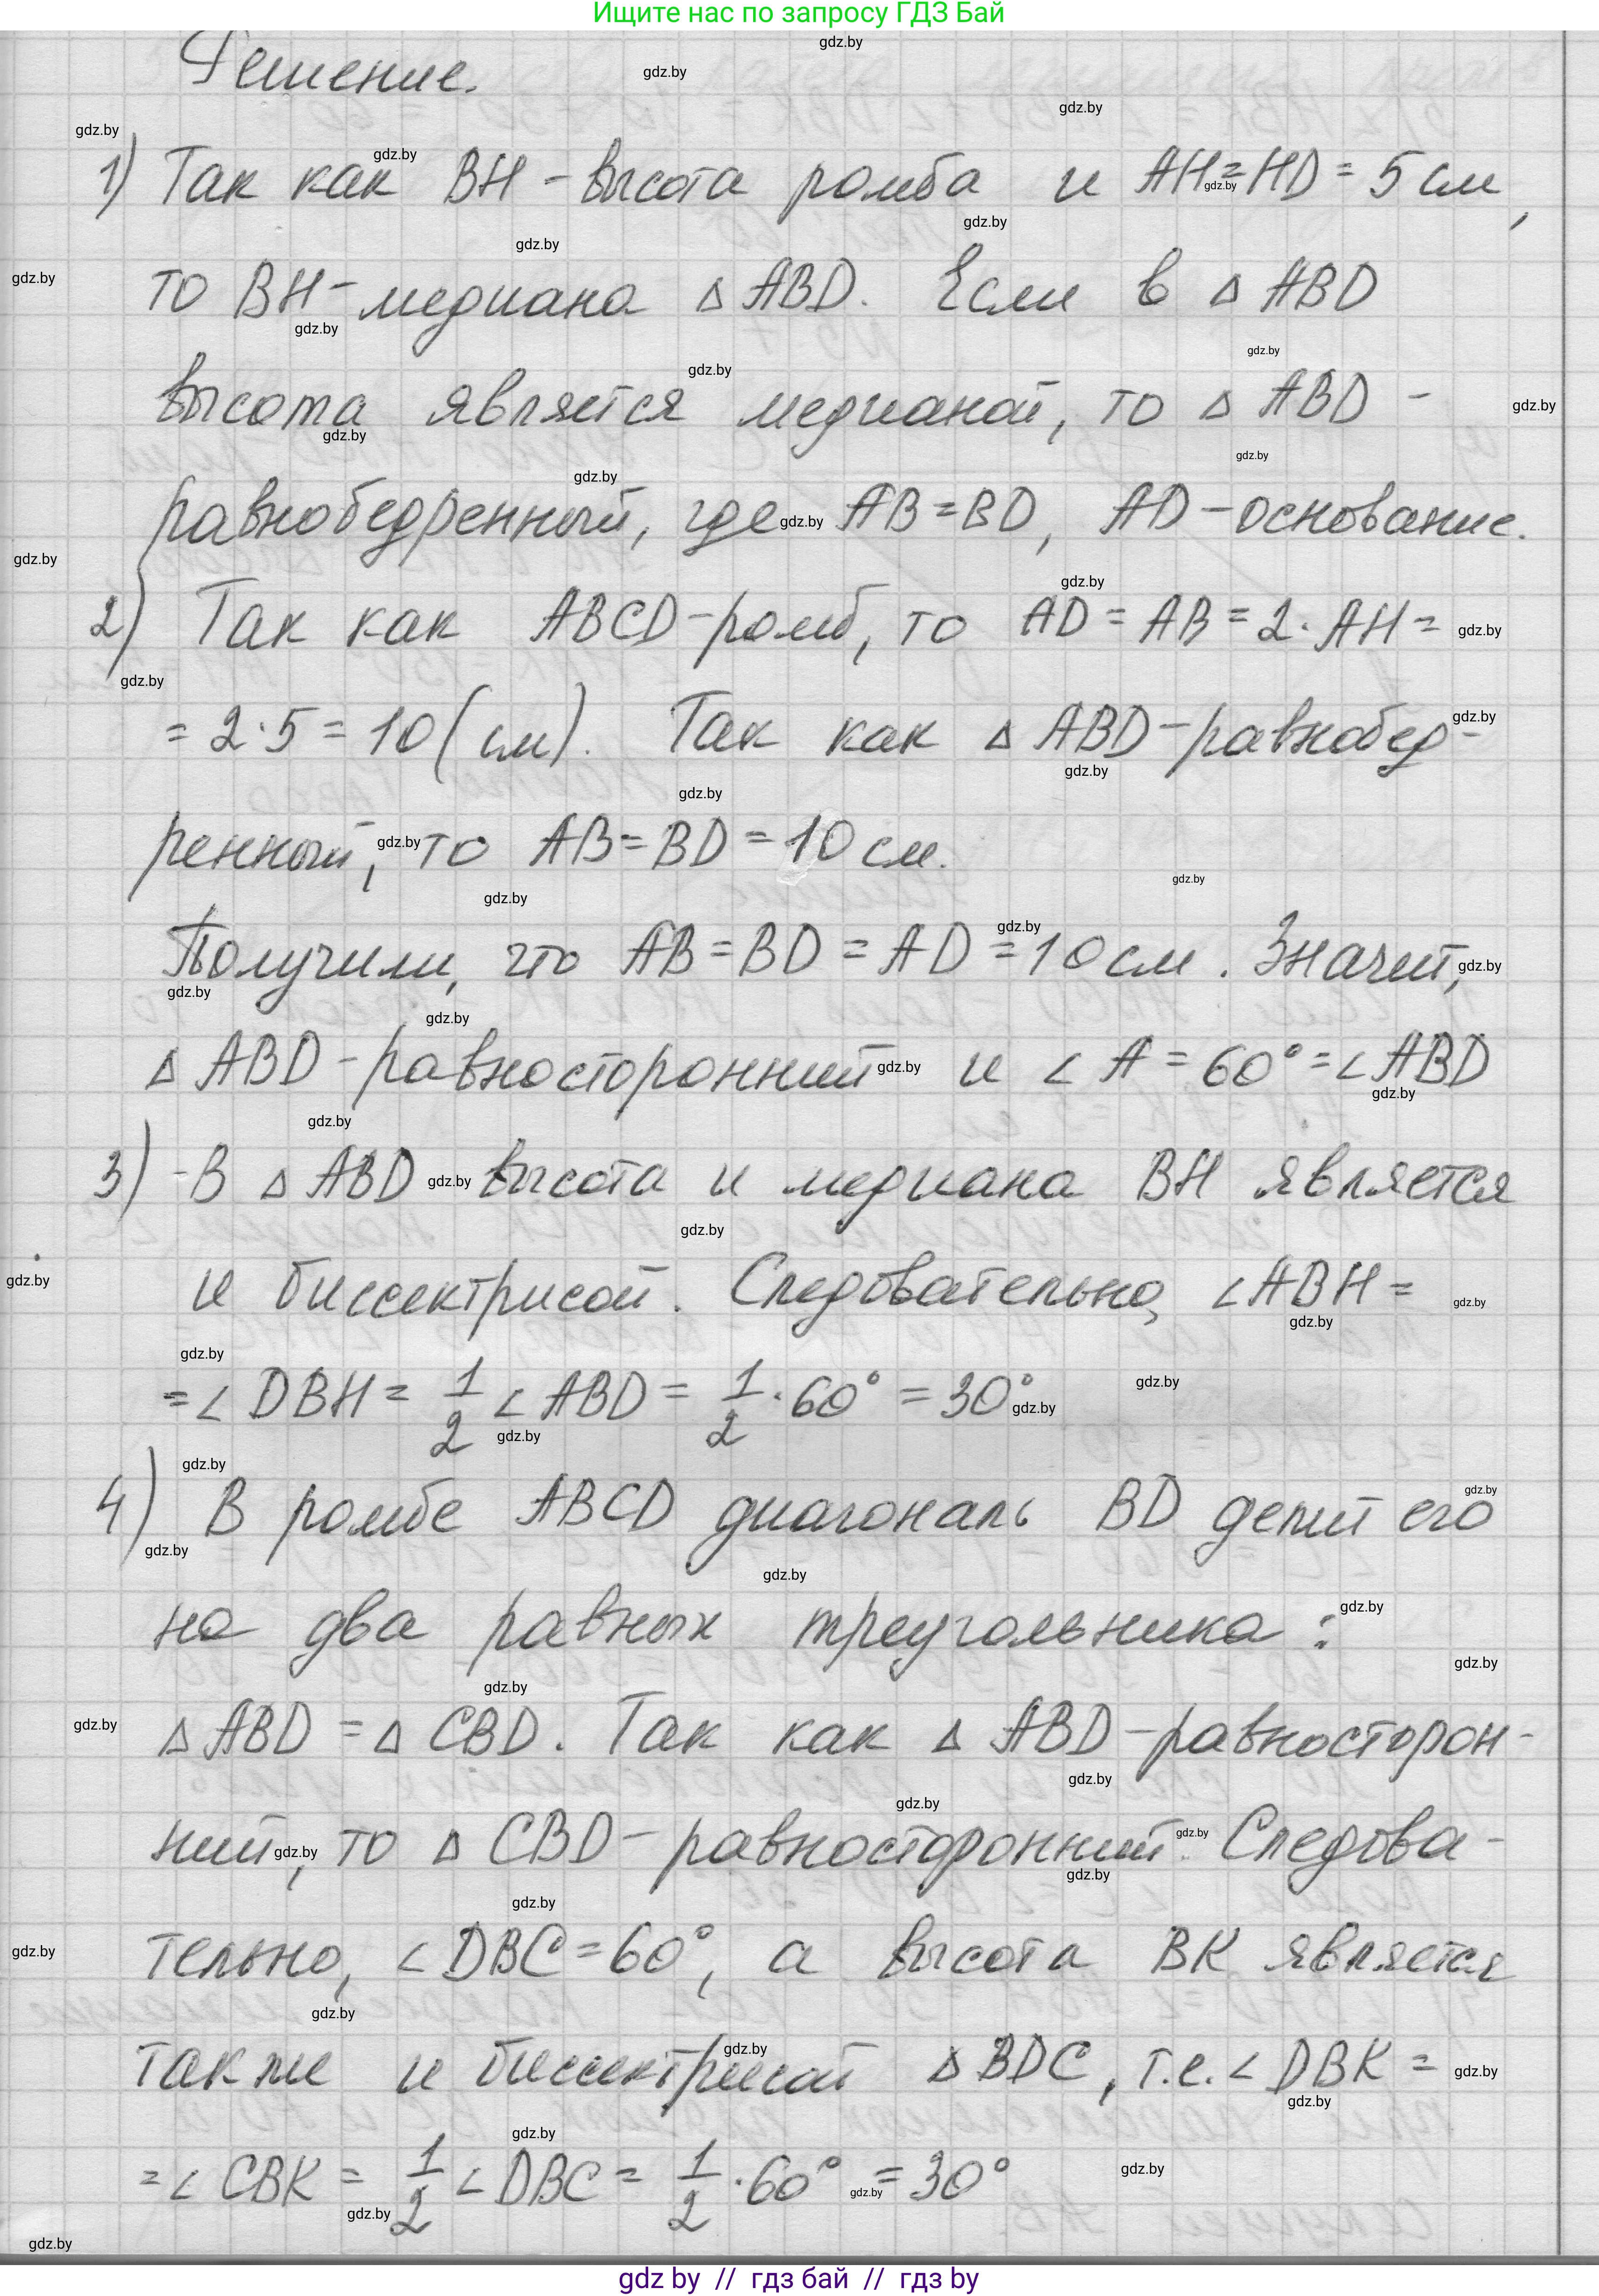 Ищите нас по запросу ГДЗ Бай
Решение.
1) Так как BH - высота ромба и AH = HD = 5 см,
то BH - медиана △ ABD. Если в △ ABD
высота является медианой, то △ ABD -
равнобедренный, где AB = BD, AD - основание.
2) Так как ABCD - ромб, то AD = AB = 2 · AH =
= 2 · 5 = 10 (см). Так как △ ABD - равнобед-
ренный, то AB = BD = 10 см.
Получили, что AB = BD = AD = 10 см. Значит,
△ ABD - равносторонний и ∠ A = 60° = ∠ ABD
3) В △ ABD высота и медиана BH является
и биссектрисой. Следовательно, ∠ ABH =
= ∠ DBH = 1/2 ∠ ABD = 1/2 · 60° = 30°
4) В ромбе ABCD диагональ BD делит его
на два равных треугольника:
△ ABD = △ CBD. Так как △ ABD - равносторон-
ний, то △ CBD - равносторонний. Следова-
тельно, ∠ DBC = 60°, а высота BK является
также и биссектрисой △ BDC, т.е. ∠ DBK =
= ∠ CBK = 1/2 ∠ DBC = 1/2 · 60° = 30°
gdz by // гдз бай // гдз by